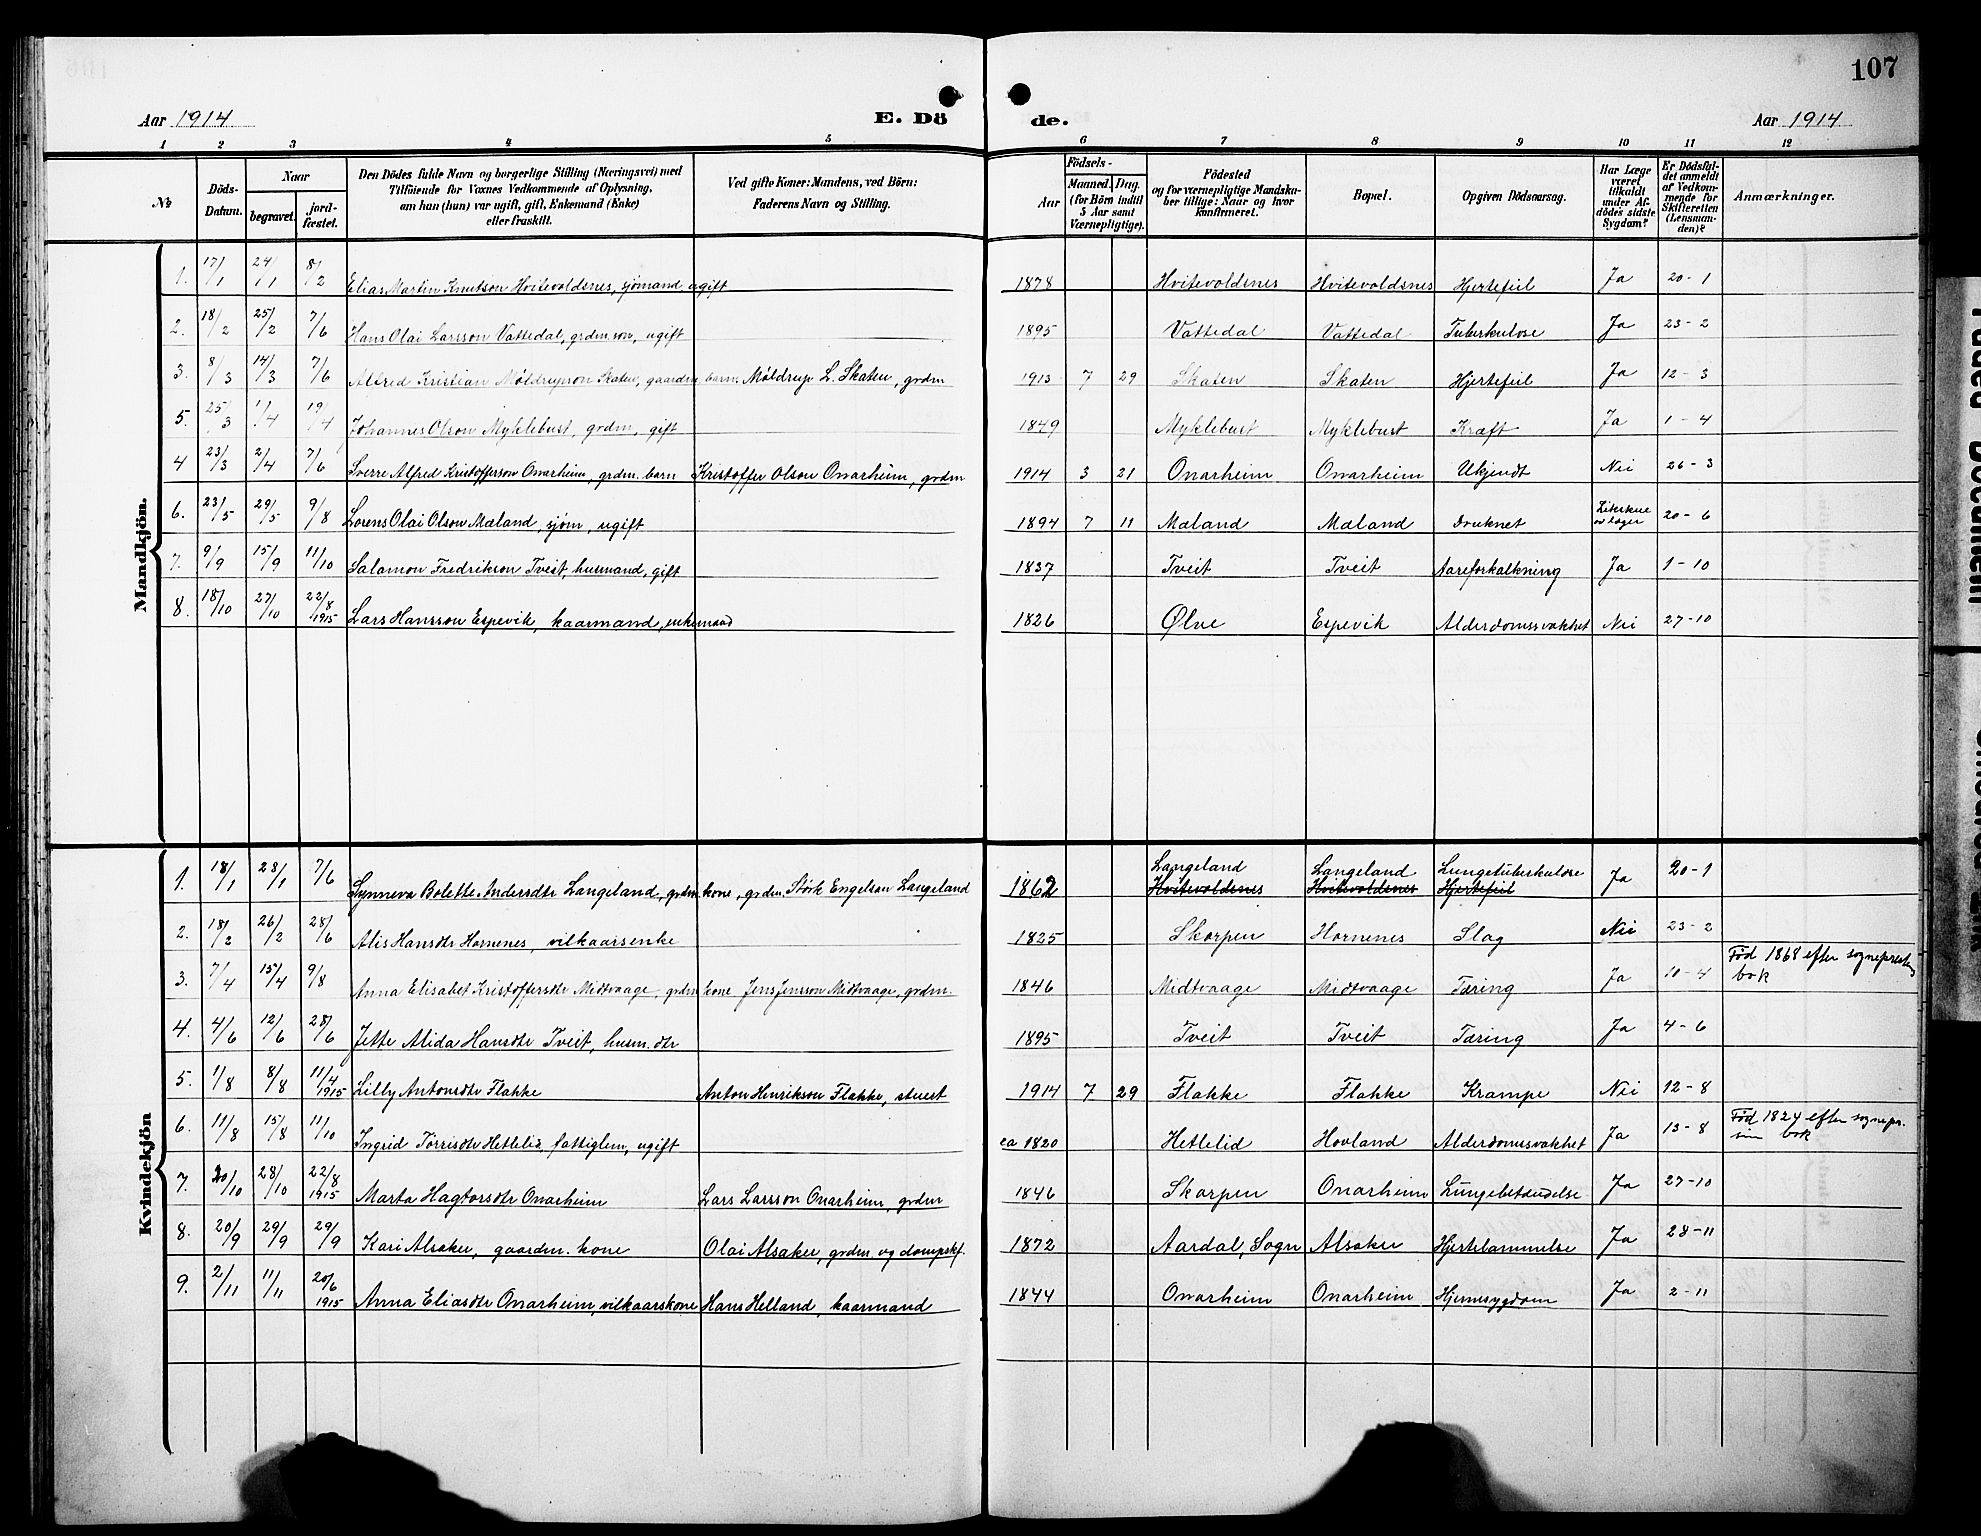 107
Aar 1914 E. Dö de. Aar 1914
1 2 3 4 5 6 7 8 9 10 11 12
№ Döds-Datum. Naar begravet. jord-fæstet. Den Dödes fulde Navn og borgerlige Stilling (Næringsvei) med Tilföiende for Voxnes Vedkommende af Oplysning, om han (hun) var ugift, gift, Enkemand (Enke) eller fraskilt. Ved gifte Koner: Mandens, ved Börn: Faderens Navn og Stilling. Födsels- Aar Maaned. Dag. (for Börn indtil 5 Aar samt Værnepligtige). Födested og for værnepligtige Mandska-ber tillige: Naar og hvor konfirmeret. Bopæl. Opgiven Dödsaarsag. Har Læge været tilkaldt under Af-dödes sidste Sygdom? Er Dödsfal-det anmeldt af Vedkom-mende for Skifteretten (Lensman-den)? Anmærkninger.
Mandkjön.
1. 17/1 24/1 8/2 Elias Martin Knutson Hvitevoldsnes, sjömand ugift 1878 Hvitevoldsnes Hvitevoldsnes Hjertefeil Ja 20-1
2. 18/2 25/2 7/6 Hans Olai Larsson Vattedal, grdm. son, ugift 1895 Vattedal Vattedal Tuberkulose Ja 23-2
3. 8/3 14/3 7/6 Alfred Kristian Møldrupson Skaten, gaardm. barn. Møldrup L. Skaten, grdm 1913 7 29 Skaten Skaten Hjertefeil Ja 12-3
5. 25/3 1/4 19/4 Johannes Olson Myklebust, grdm, gift 1849 Myklebust Myklebust Kræft Ja 1-4
4 23/3 2/4 7/6 Sverre Alfred Kristofferson Onarheim, grdm. barn Kristoffer Olson Onarheim, grdm 1914 3 21 Onarheim Onarheim Ukjendt Nei 26-3
6. 23/5 29/5 9/8 Lorens Olai Olson Mæland, sjøm, ugift 1894 7 11 Mæland Mæland Druknet 20-6
7. 9/9 15/9 11/10 Salamon Fredrikson Tveit, husmand, gift 1837 Tveit Tveit Aareforkalkning Ja 1-10
8. 18/10 27/10 22/8 1915 Lars Hansson Espevik, kaarmand, enkemand 1826 Ølve Espevik Alderdomssvakhet Nei 27-10
Kvindekjön
1. 18/1 28/1 7/6 Synneva Bolette Andersdtr Langeland, grdm. kone, grdm. Størk Engelson Langeland 1862 Langeland Langeland Lungetuberkulose Ja 20-1
Hvitevoldsnes Hvitevoldsnes Hjertefeil
2. 18/2 26/2 28/6 Alis Hansdtr Hornenes, vilkaarsenke 1825 Skorpen Hornenes Slag Nei 23-2
3. 7/4 15/4 9/8 Anna Elisabet Kristoffersdtr Midtvaage, grdm kone Jens Jensson Midtvaage, grdm. 1846 Midtvaage Midtvaage Tæring Ja 10-4 Född 1868 efter sogneprestens bok
4. 4/6 12/6 28/6 Jette Alida Hansdtr Tveit, husm. dtr 1895 Tveit Tveit Tæring Ja 4-6
5. 1/8 8/8 11/4 1915 Lilly Antonsdtr Flakke Anton Henrikson Flakke, stuert 1914 7 29 Flakke Flakke Krampe Nei 12-8
6. 11/8 15/8 11/10 Ingrid Tørrisdtr Hetlelid, fattiglem, ugift ca 1820 Hetlelid Hovland Alderdomssvakhet Ja 13-8 Född 1824 efter sognepr. sin bok
7. 20/10 28/10 22/8 1915 Marta Hagtorsdtr Onarheim Lars Larsson Onarheim, grdm 1846 Skorpen Onarheim Lungebetændelse Ja 27-10
8. 20/9 29/9 29/9 Kari Alsaker, gaardm. kone Olai Alsaker, grdm. og dampskf. 1872 Aardal, Sogn Alsaker Hjertelammelse Ja 28-11
9. 2/11 11/11 20/6 1915 Anna Eliasdtr Onarheim, vilkaarskone Hans Helland, kaarmand 1844 Onarheim Onarheim Hjernesygdom Ja 2-11